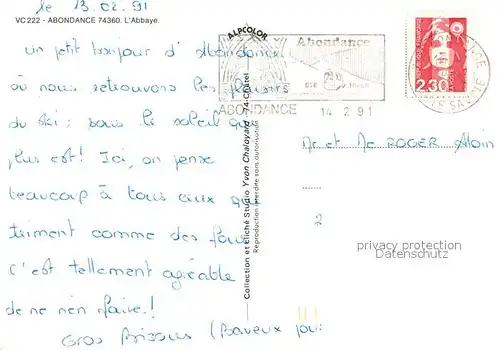 le 13.02.91
VC 222 - ABONDANCE 74360. L'Abbaye.
Un petit bonjour d'Abondance
où nous retrouvons les plaisirs
du ski; sous le soleil qui
plus est! Ici, on pense
beaucoup à tous ceux qui
triment comme des fous
C'est tellement agréable
de ne rien faire!
Gros Bisous (Baveux
ALPCOLOR
Collection et cliché Studio Yvon Chaloyard 74-Châtel
Reproduction interdite sans autorisation
Abondance
ABONDANCE
14 2 91
2,30
Mr et Me ROGER Alain
2
privacy protection